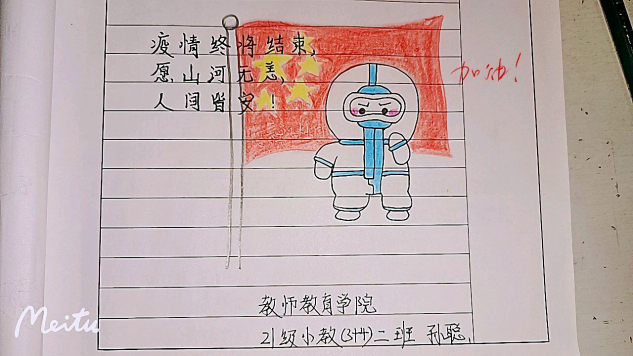 疫情终将结束,
愿山河无恙,
人间皆安!
加油!
教师教育学院
21级小教(3+4)二班 孙聪.
Meitu